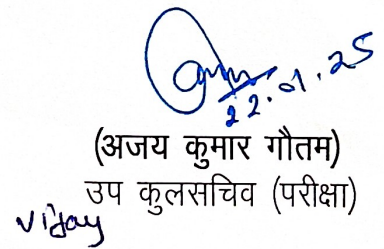 22.01.25
(अजय कुमार गौतम)
उप कुलसचिव (परीक्षा)
Vijay